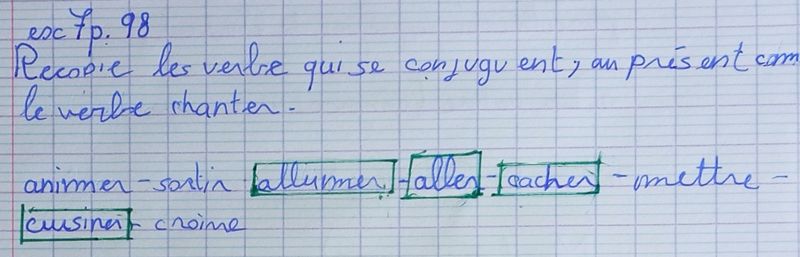 exc 7p. 98
Recopie les verbe qui se conjuguent, au présent com
le verbe chanter.
animer - sortir - allumer - aller - cacher - mettre -
cuisiner - croire